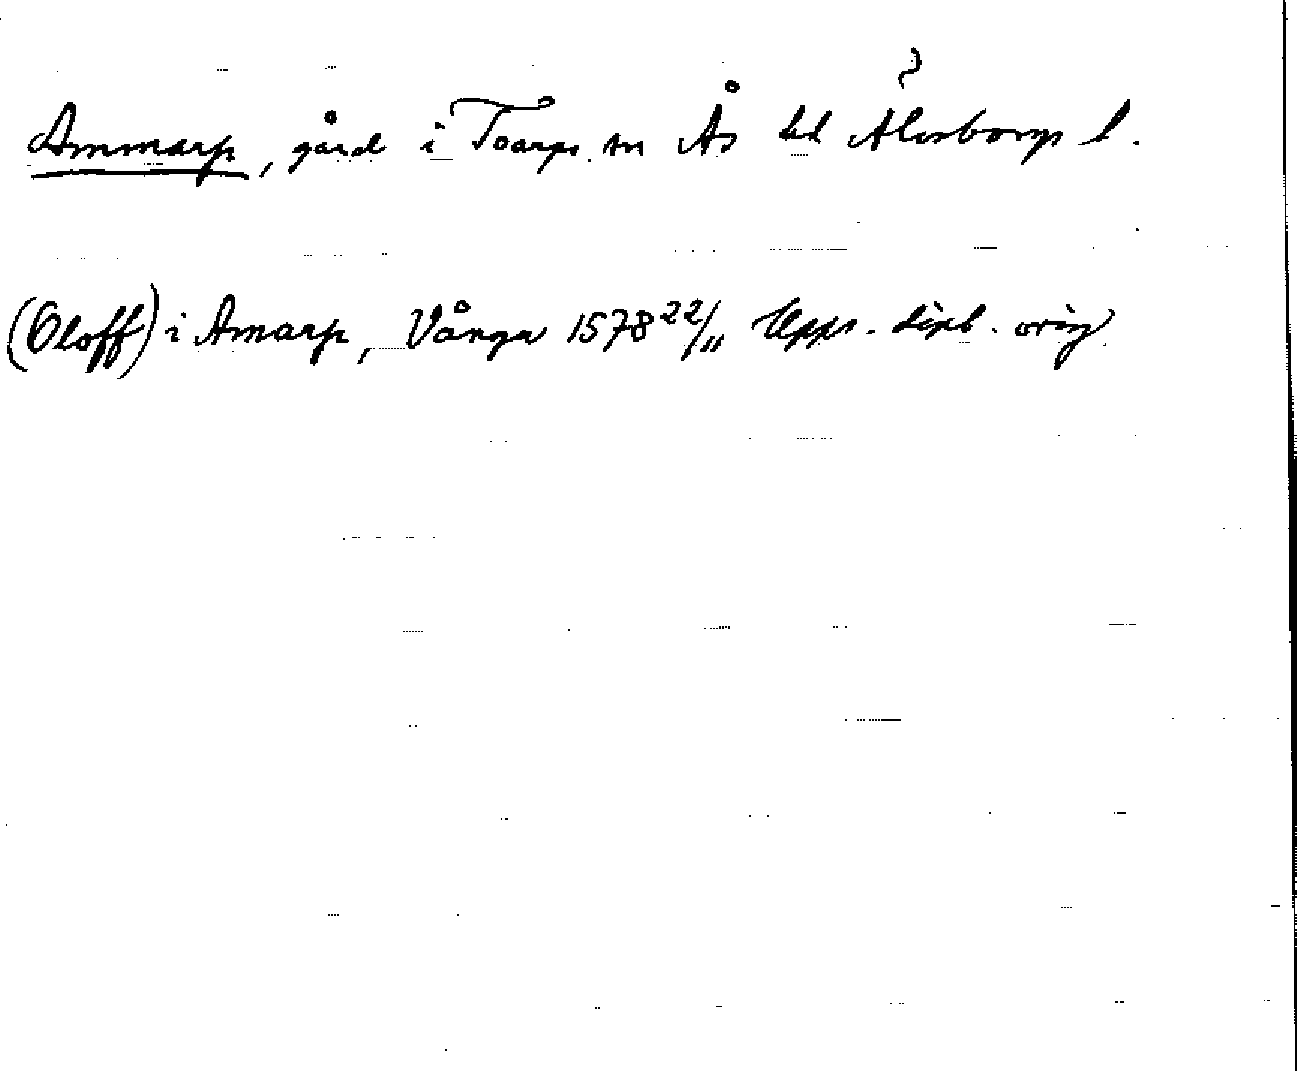 Ammarp, gård i Toarps sn Ås hd Älvsborgs l.
(Oloff) i Amarp, Vånga 1578 22/11 Upps. dipl. orig